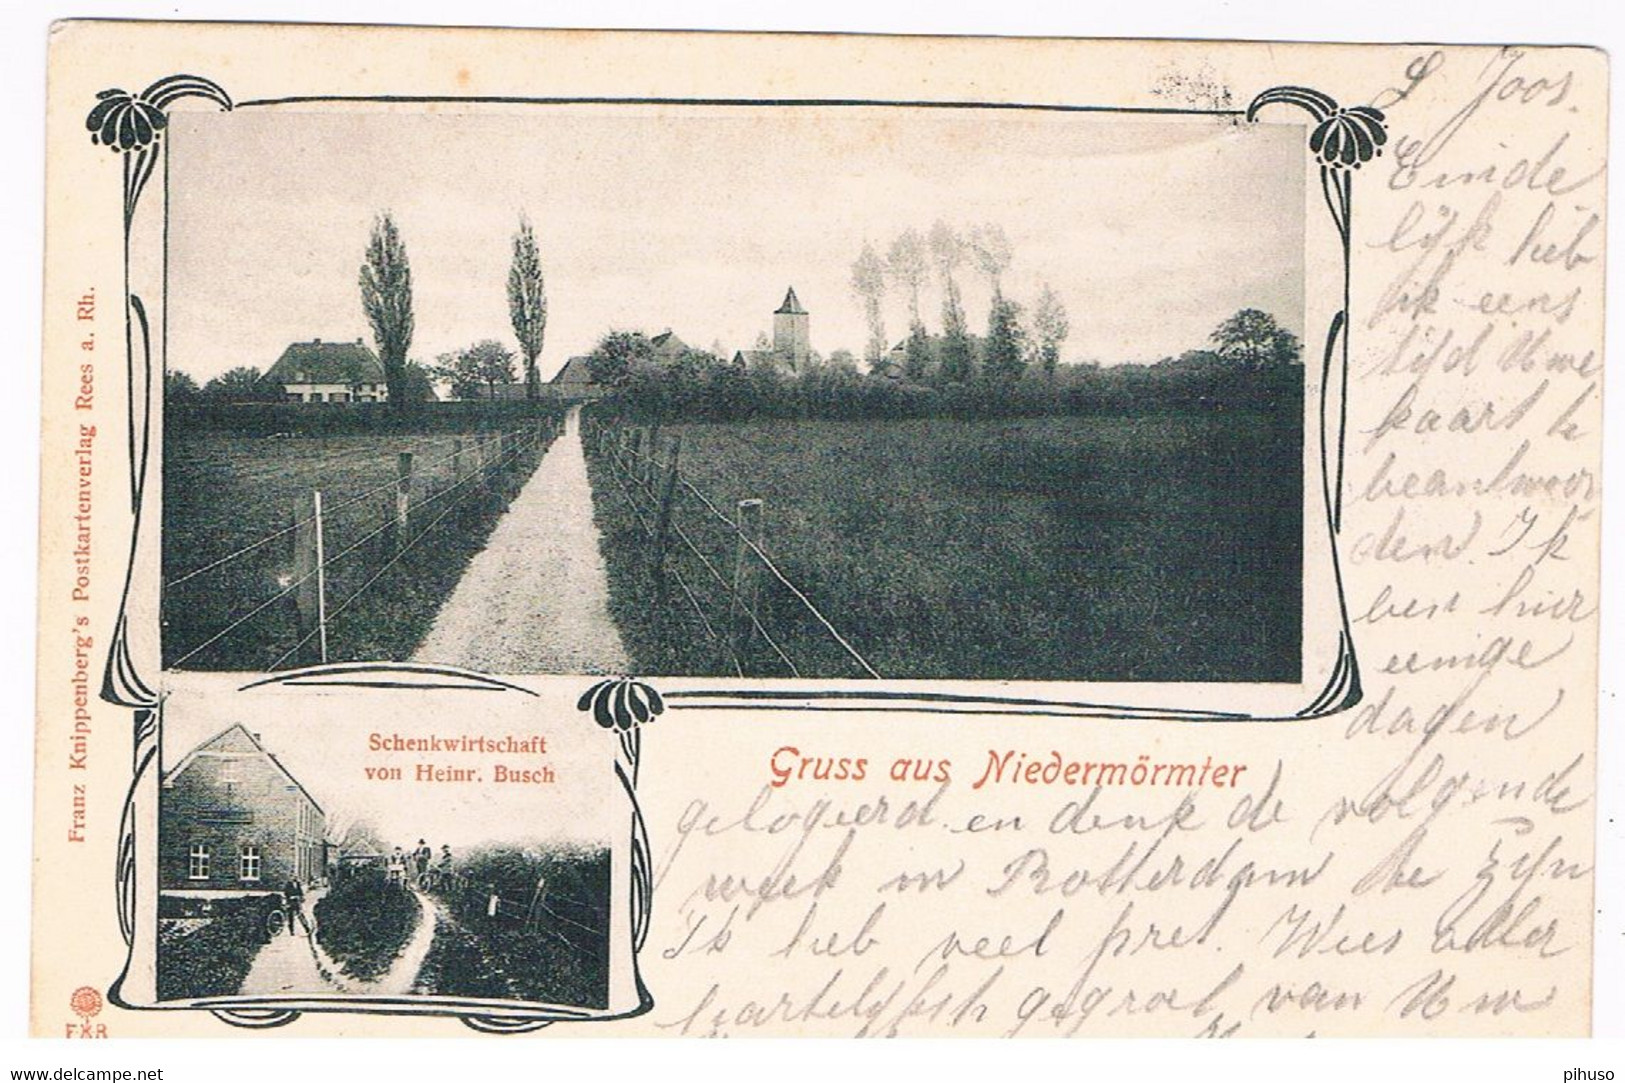 Franz Knippenberg's Postkartenverlag Rees a. Rh.
Schenkwirtschaft
von Heinr. Busch
Gruss aus Niedermörmter
F K R
L Joos.
Einde
lijk heb
ik eens
tijd Uwe
kaart te
beantwoor
den. Ik
ben hier
eenige
dagen
gelogeerd en denk de volgende
week in Rotterdam te zijn
Ik heb veel pret. Wees aller
hartelijkst gegroet van Uw
delcampe.net
pihuso